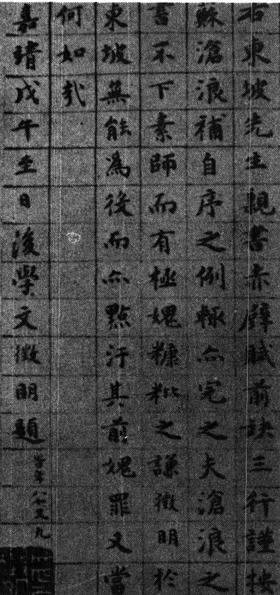 右東坡先生親書赤壁賦前缺三行謹按
蘇滄浪補自序之例輒亦完之夫滄浪之
書不下素師而有極媿糠粃之謙徵明於
東坡無能為役而亦點汙其前媿罪又當
何如哉
嘉靖戊午至日後學文徵明題
時年八十又九